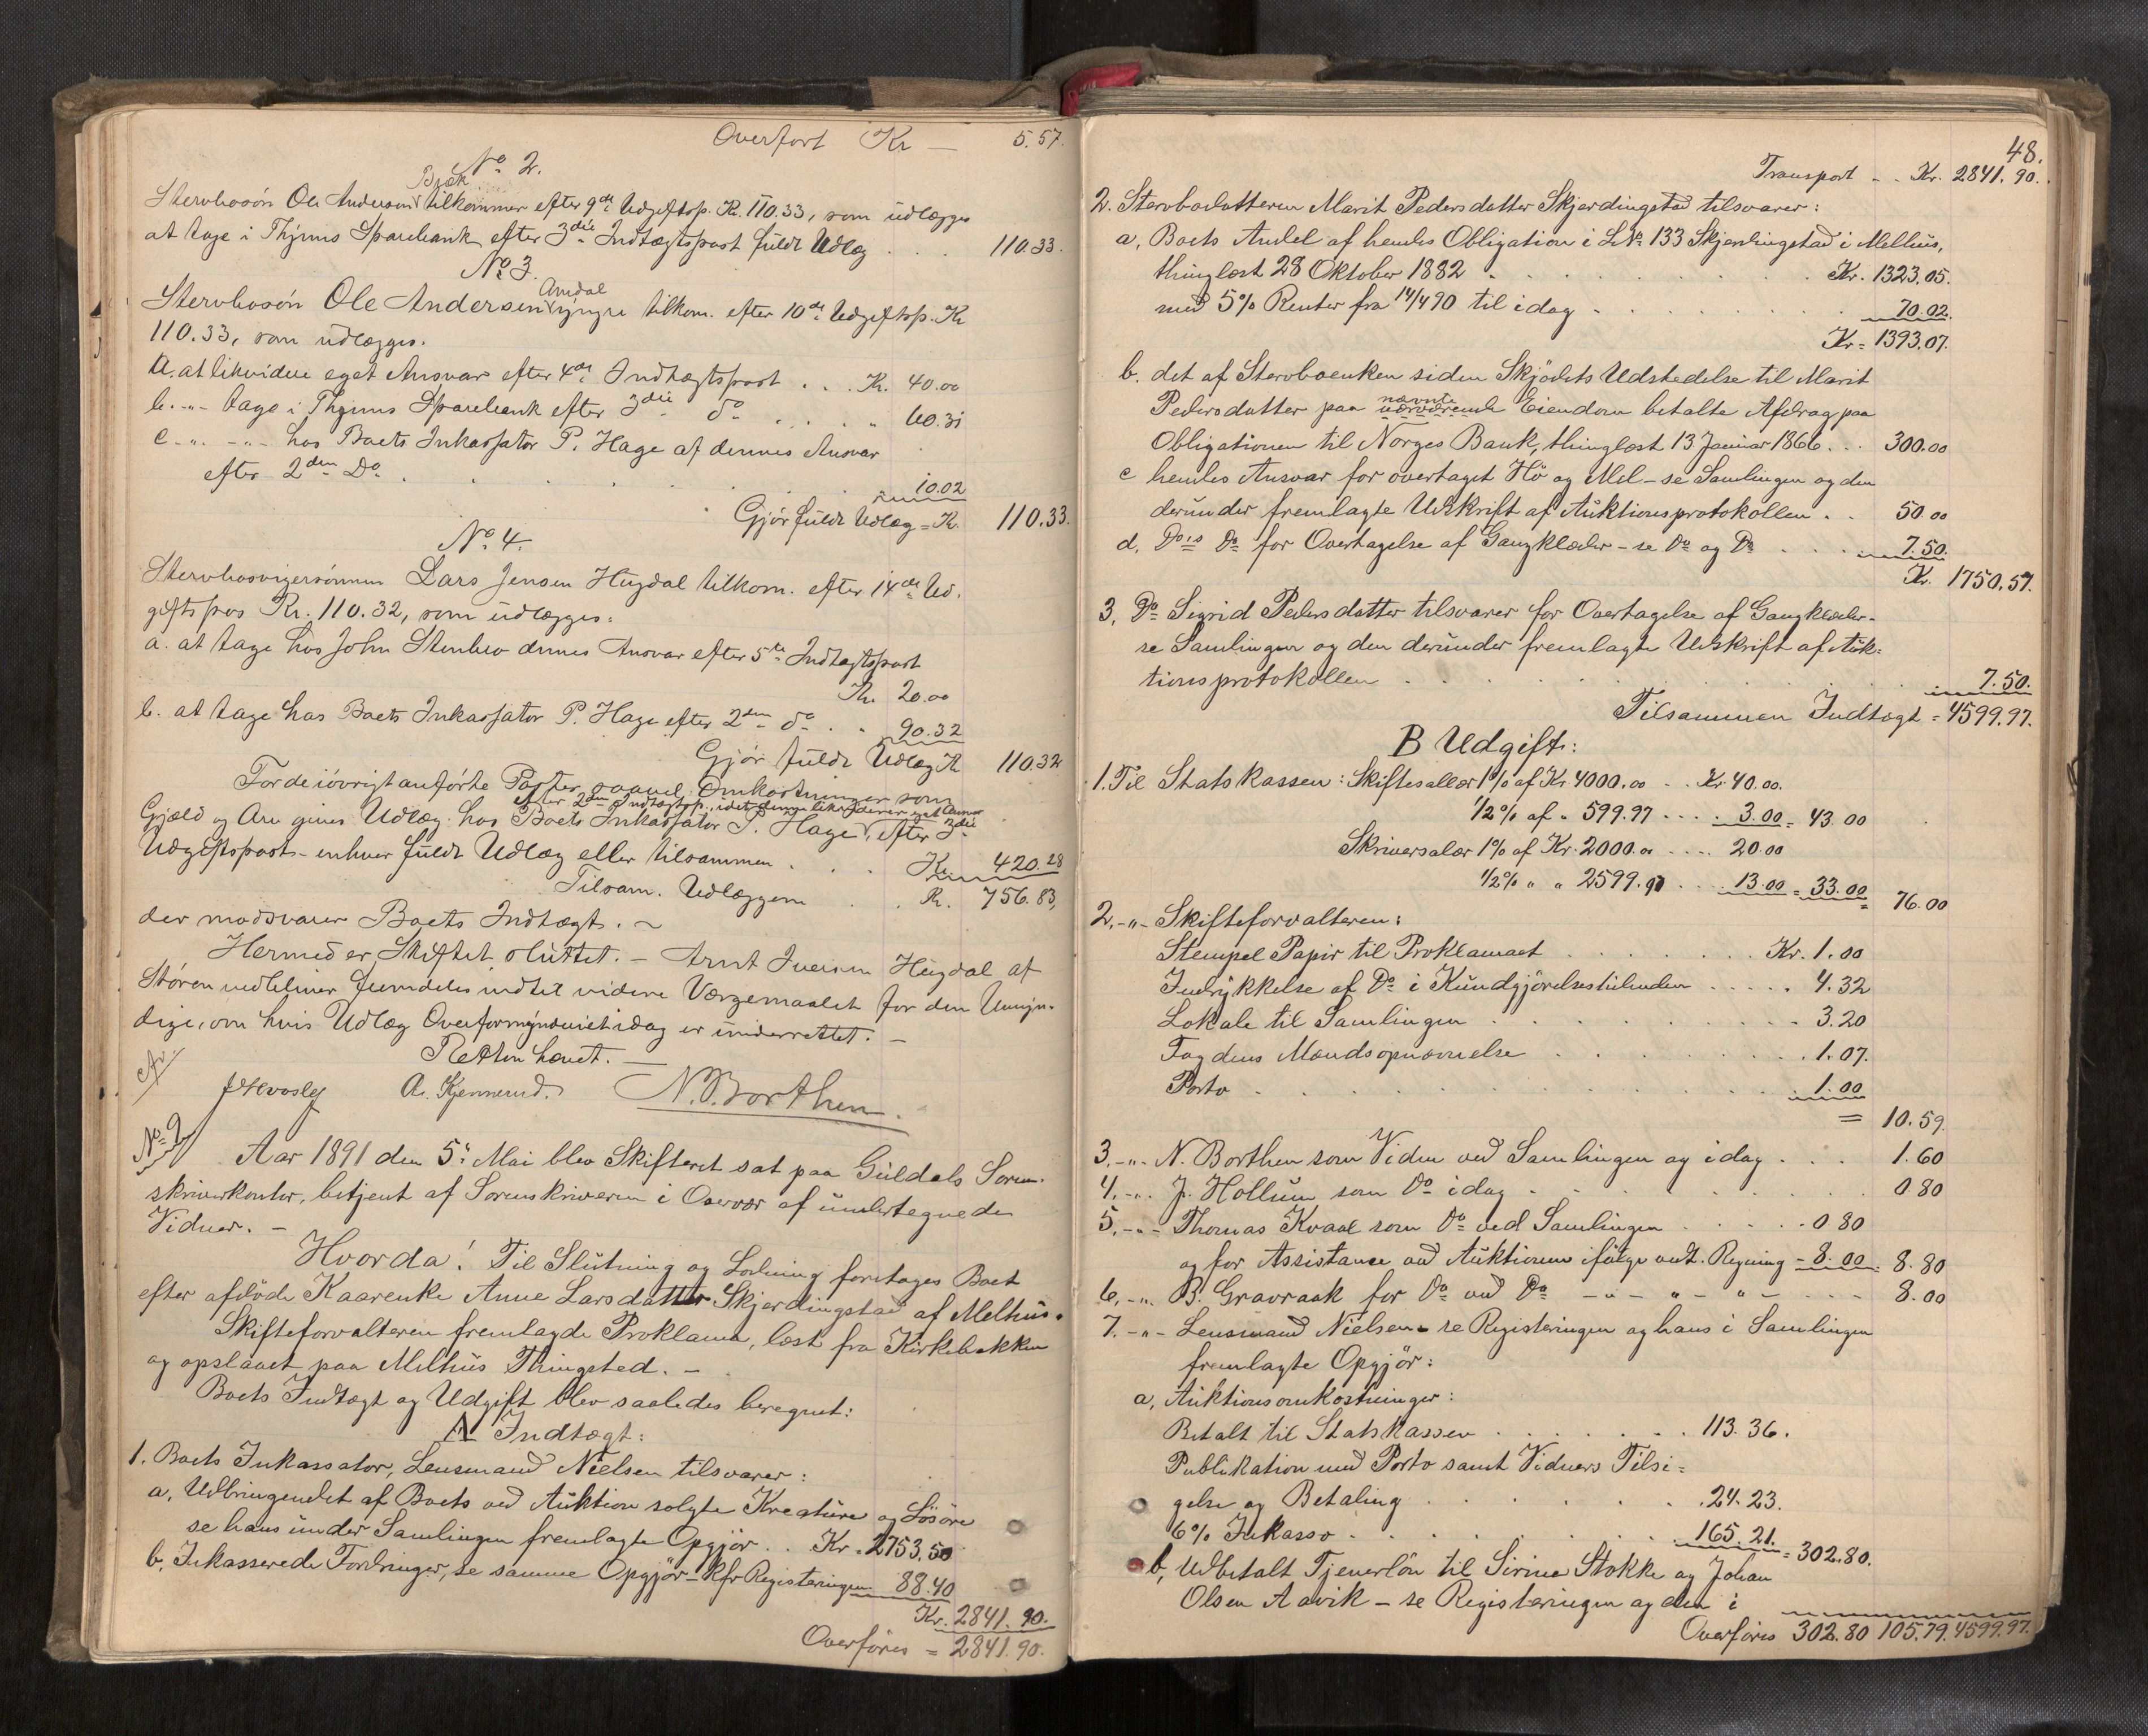 Overført Kr — 5.57.
No 2.
Bjæk
Stervbosøn Ole Andersen tilkommer efter 9de Udgiftsp. Kr. 110.33, som udlægges
at tage i Thyms Sparebank efter 3die Indtægtspost fuldt Udlæg . . . 110.33.
No 3.
Amdal
Stervbosøn Ole Andersen yngre tilkom. efter 10de Udgiftsp. Kr
110.33, som udlægges.
a. at likvidere eget Ansvar efter 4de Indtægtspost . . . Kr. 40.00
b. -"- tage i Thyms Sparebank efter 3die do . . . . " 60.31
c -". -"- hos Boets Inkassator P. Hage af dennes Ansvar
efter 2den Do . . . . . . . . 10.02
Gjør fuldt Udlæg = Kr. 110.33.
No 4.
Stervbosvigersønnen Lars Jensen Hugdal tilkom. efter 14de Ud.
giftspos Kr. 110.32, som udlægges:
a. at tage hos John Stenbro dennes Ansvar efter 5te Indtægtspost
Kr. 20.00
b. at tage hos Boets Inkassator P. Hage efter 2den do . . 90.32
Gjør fuldt Udlæg Kr 110.32
For de iøvrigt anførte Poster, saavel Omkostninger som
efter 2den Indtægtsp., idet denne likviderer eget Ansvar
Gjæld og Arv gives Udlæg hos Boets Inkassator P. Hage, efter 3die
Udgiftspost - enhver fuldt Udlæg eller tilsammen . . . Kr. 420.28
Tilsam. Udlæggene . . Kr. 756.83,
der modsvarer Boets Indtægt. ~
Hermed er Skiftet sluttet. - Arnt Iversen Hugdal af
Støren vedbliver fremdeles indtil videre Værgemaalet for den Umyn-
dige, om hvis Udlæg Overformynderiet idag er underrettet. -
Retten hævet. —
A. Kjennerud. N. Borthen.
No 2
Aar 1891 den 5te Mai blev Skifteret sat paa Guldals Soren-
skriverkontor, betjent af Sorenskriveren i Overvær af undertegnede
Vidner. -
Hvorda! Til Slutning og Lodning foretages Boet
efter afdøde Kaarenke Anne Larsdatter Skjerdingstad af Melhus.
Skifteforvalteren fremlagde Proklama, læst fra Kirkebakken
og opslaaet paa Melhus Thingsted. -
Boets Indtægt og Udgift blev saaledes beregnet:
A Indtægt:
1. Boets Inkassator, Lensmand Nielsen tilsvarer:
a, Udbringendet af Boets ved Auktion solgte Kreature og Løsøre
se hans under Samlingen fremlagte Opgjør . . Kr. 2753.50
b, Inkasserede Fordringer, se samme Opgjør - kfr Registeringen 88.40
Kr. 2841.90.
Overføres = 2841.90.
48.
Transport - . Kr. 2841.90.
2. Stervbodatteren Marit Pedersdatter Skjerdingstad tilsvarer:
a, Boets Andel af hendes Obligation i LNo 133 Skjerdingstad i Melhus,
thinglæst 28 Oktober 1882 . . . . . . . . . Kr. 1323.05.
med 5% Renter fra 14/4 90 til idag . . . . . . . 70.02.
Kr = 1393.07.
b. det af Stervboenken siden Skjødets Udstedelse til Marit
nævnte
Pedersdatter paa nærværende Eiendom betalte Afdrag paa
Obligationen til Norges Bank, thinglæst 13 Januar 1866 . . 300.00
c hendes Ansvar for overtaget Hø og Mel - se Samlingen og den
derunder fremlagte Udskrift af Auktionsprotokollen . . 50.00
d, Do's Do for Overtagelse af Gangklæder - se Do og Do . . . . 7.50.
Kr. 1750.57.
3, Do Sigrid Pedersdatter tilsvarer for Overtagelse af Gangklæder -
se Samlingen og den derunder fremlagte Udskrift af Auk=
tionsprotokollen . . . . . . . . . . . 7.50.
Tilsammen Indtægt = 4599.97.
B Udgift:
1. Til Statskassen: Skiftesallær 1% af Kr 4000.00 . . Kr. 40.00.
1/2% af " 599.97 . . . . 3.00 = 43.00
Skriversalær 1% af Kr. 2000.00 . . . . 20.00
1/2% " " 2599.97 . . . . 13.00 = 33.00 = 76.00
2, -"- Skifteforvalteren:
Stempel Papir til Proklamaet . . . . . . . . Kr. 1.00
Indrykkelse af Do i Kundgjørelsestidenden . . . . . 4.32
Lokale til Samlingen . . . . . . . . . 3.20
Fogdens Mandsopnævnelse . . . . . . . 1.07.
Porto . . . . . . . . . . . . 1.00
= 10.59.
3, -"- N. Borthen som Vidne ved Samlingen og idag . . . 1.60
4, -". J. Hollum som Do idag . . . . . . . . . 0 80
5, -"- Thomas Kvaal som Do ved Samlingen . . . . . 0 80
og for Assistance ved Auktionen ifølge vedt. Regning - 8.00 = 8.80
6, -". B. Gravraak for Do ved Do -"- "- "- . . . 8.00
7. -"- Lensmand Nielsen - se Registeringen og hans i Samlingen
fremlagte Opgjør:
a, Auktionsomkostninger:
Betalt til Statskassen . . . . . . . 113.36.
Publikation med Porto samt Vidners Tilsi=
gelse og Betaling . . . . . . . 24.23.
6% Inkasso . . . . . . . . . 165.21. = 302.80.
b, Udbetalt Tjenerløn til Sirine Stokke og Johan
Olsen Aavik - se Registeringen og den i
Overføres 302.80 105.79. 4599.97.